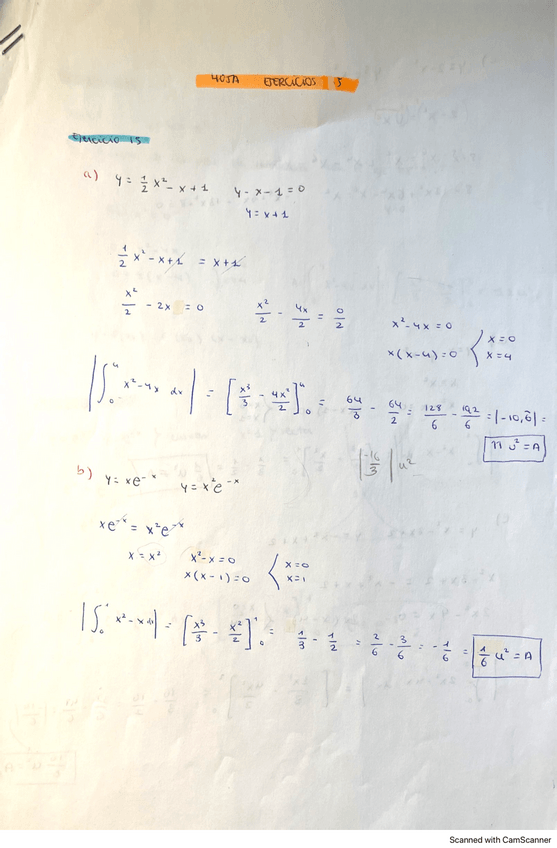 HOJA EJERCICIOS 5
Ejercicio 15
a) y = 1/2 x² - x + 1 y - x - 1 = 0
y = x + 1
1/2 x² - x + 1 = x + 1
x²/2 - 2x = 0 x²/2 - 4x/2 = 0/2 x² - 4x = 0
x(x - 4) = 0 { x = 0 x = 4
|∫₀⁴ x² - 4x dx| = [x³/3 - 4x²/2]₀⁴ = 64/3 - 64/2 = 128/6 - 192/6 = |-10,6| =
11 u² = A
|-16/3| u²
b) y = xe^-x y = x²e^-x
xe^-x = x²e^-x
x = x² x² - x = 0
x(x - 1) = 0 { x = 0 x = 1
|∫₀¹ x² - x dx| = [x³/3 - x²/2]₀¹ = 1/3 - 1/2 = 2/6 - 3/6 = -1/6 = 1/6 u² = A
Scanned with CamScanner